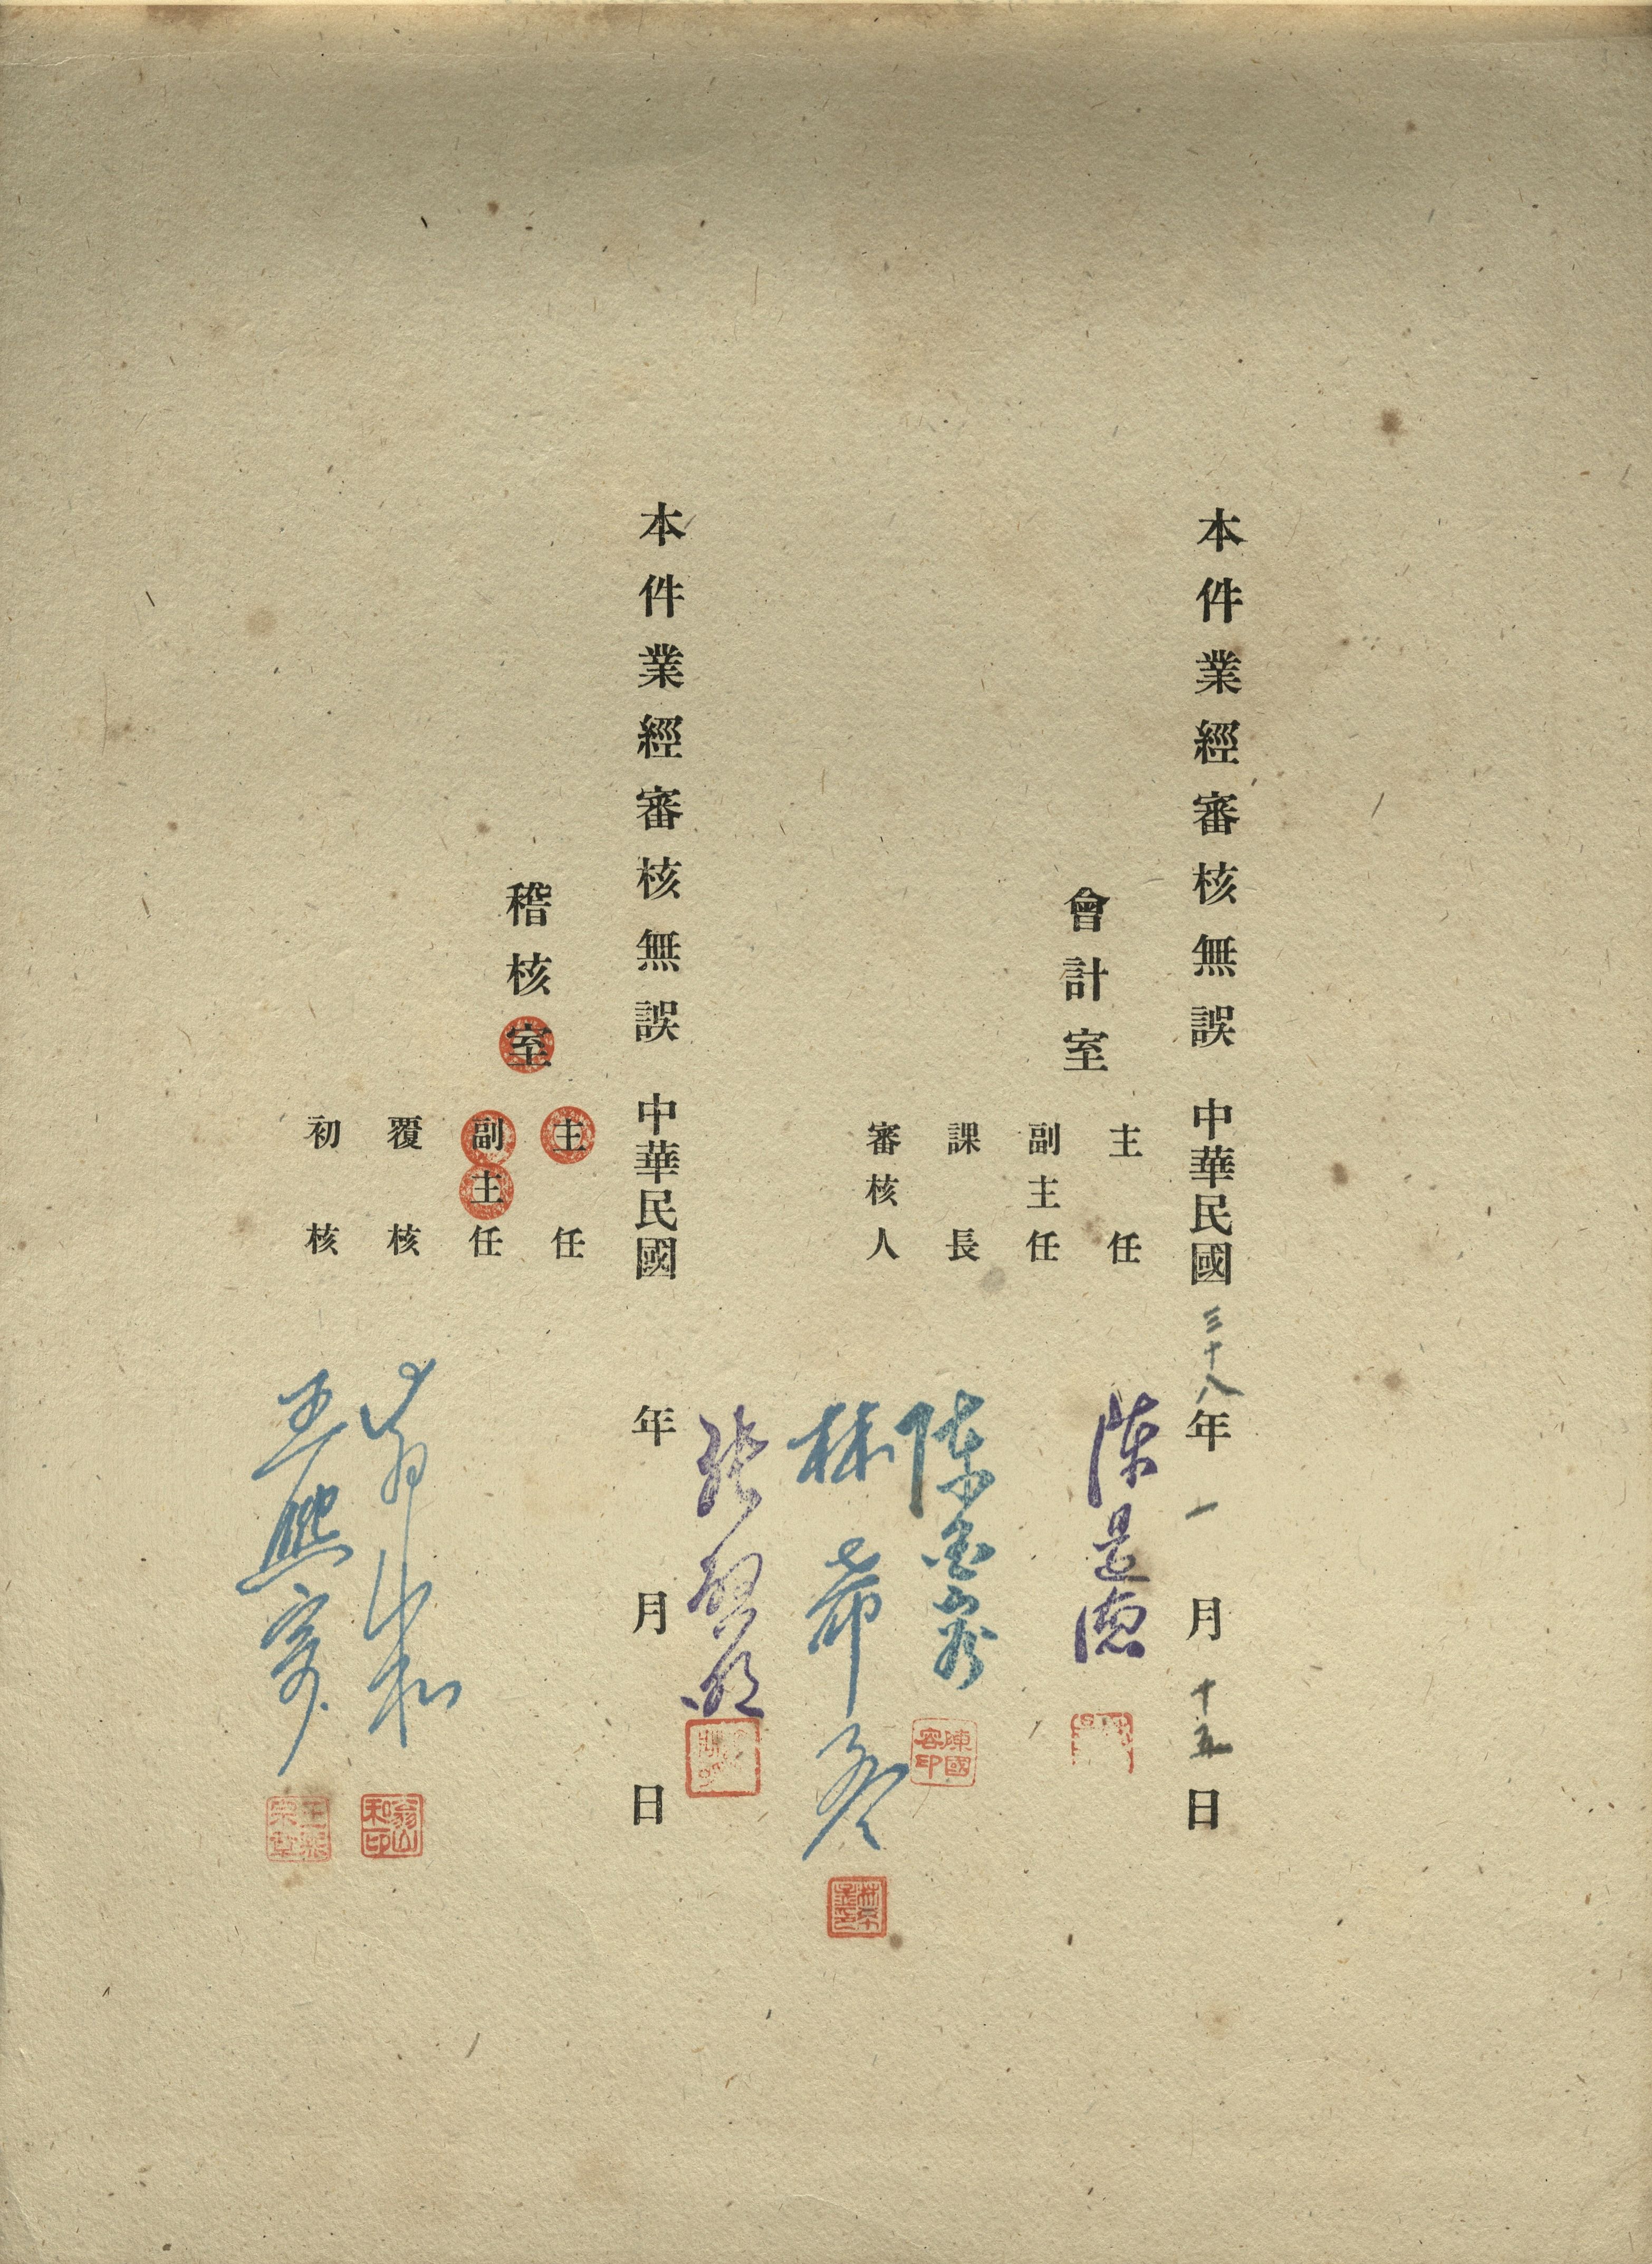 本件業經審核無誤 中華民國三十八年一月十五日
會計室
主任 陳是德
副主任
課長 陳國容
審核人 林希
本件業經審核無誤 中華民國 年 月 日
稽核室
主任
副主任
覆核 翁山和
初核 王熙宗
陳國容印
翁山和印
王熙宗章